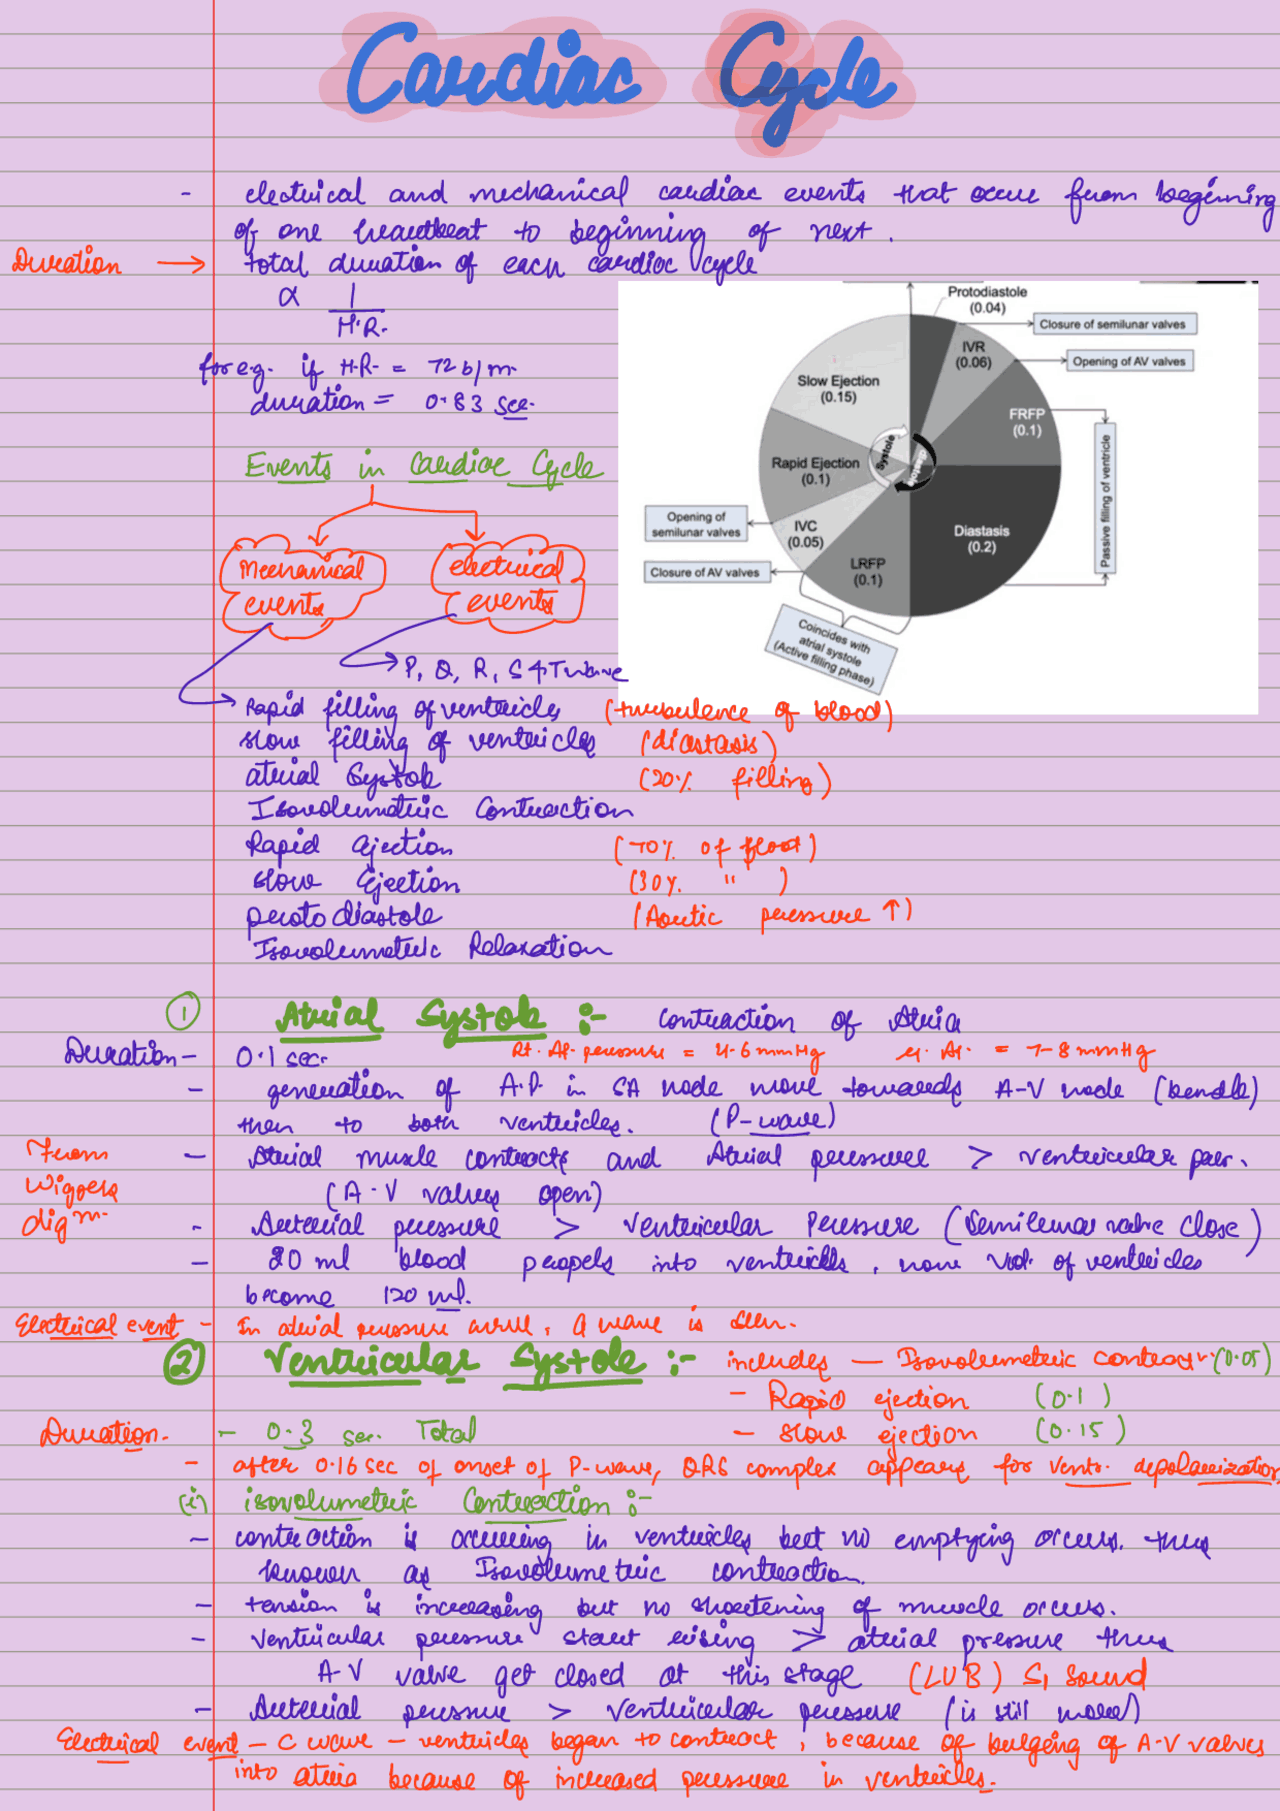 Cardiac Cycle
- electrical and mechanical cardiac events that occur from beginning
of one heartbeat to beginning of next.
Duration → total duration of each cardiac cycle
α 1
H.R.
for e.g. if H.R. = 72 b/m.
duration = 0.83 sec.
Events in Cardiac Cycle
Mechanical events
electrical events
P, Q, R, S & T wave
Protodiastole
(0.04)
Closure of semilunar valves
IVR
(0.06)
Opening of AV valves
Slow Ejection
(0.15)
FRFP
(0.1)
Systole
Rapid Ejection
(0.1)
Passive filling of ventricle
Opening of
semilunar valves
IVC
(0.05)
Diastasis
(0.2)
Closure of AV valves
LRFP
(0.1)
Coincides with
atrial systole
(Active filling phase)
Rapid filling of ventricles (turbulence of blood)
slow filling of ventricles (diastasis)
atrial Systole (20% filling)
Isovolumetric Contraction
Rapid ejection (70% of)
slow Ejection (30% " )
protodiastole (Aortic pressure ↑)
Isovolumetric Relaxation
① Atrial Systole :- contraction of Atria
Duration - 0.1 sec. Rt. At. pressure = 4-6 mmHg At. = 7-8 mmHg
- generation of A.P. in SA node move towards A-V node (bundle)
then to both ventricles. (P-wave)
From Wiggers digm.
- Atrial muscle contracts and Atrial pressure > ventricular
(A-V valves open)
- Arterial pressure > ventricular Pressure (Semilunar valve close)
- 20 ml blood propels into ventricles, now Vol. of ventricles
become 120 ml.
Electrical event - In atrial pressure curve, a wave is seen.
② Ventricular Systole :- includes - Isovolumetric contract. (0.05)
- Rapid ejection (0.1)
Duration. - 0.3 sec. Total - slow ejection (0.15)
- after 0.16 sec of onset of P-wave, QRS complex appears for ventr. depolarization
(i) isovolumetric Contraction :-
- contraction is occuring in ventricles but no emptying occurs. thus
known as Isovolumetric contraction.
- tension is increasing but no shortening of muscle occurs.
- ventricular pressure start rising > atrial pressure thus
A-V valve get closed at this stage (LUB) S₁ sound
- Arterial pressure > ventricular pressure (is still more)
Electrical event - C wave - ventricles began to contract, because of bulging of A-V valves
into atria because of increased pressure in ventricles.